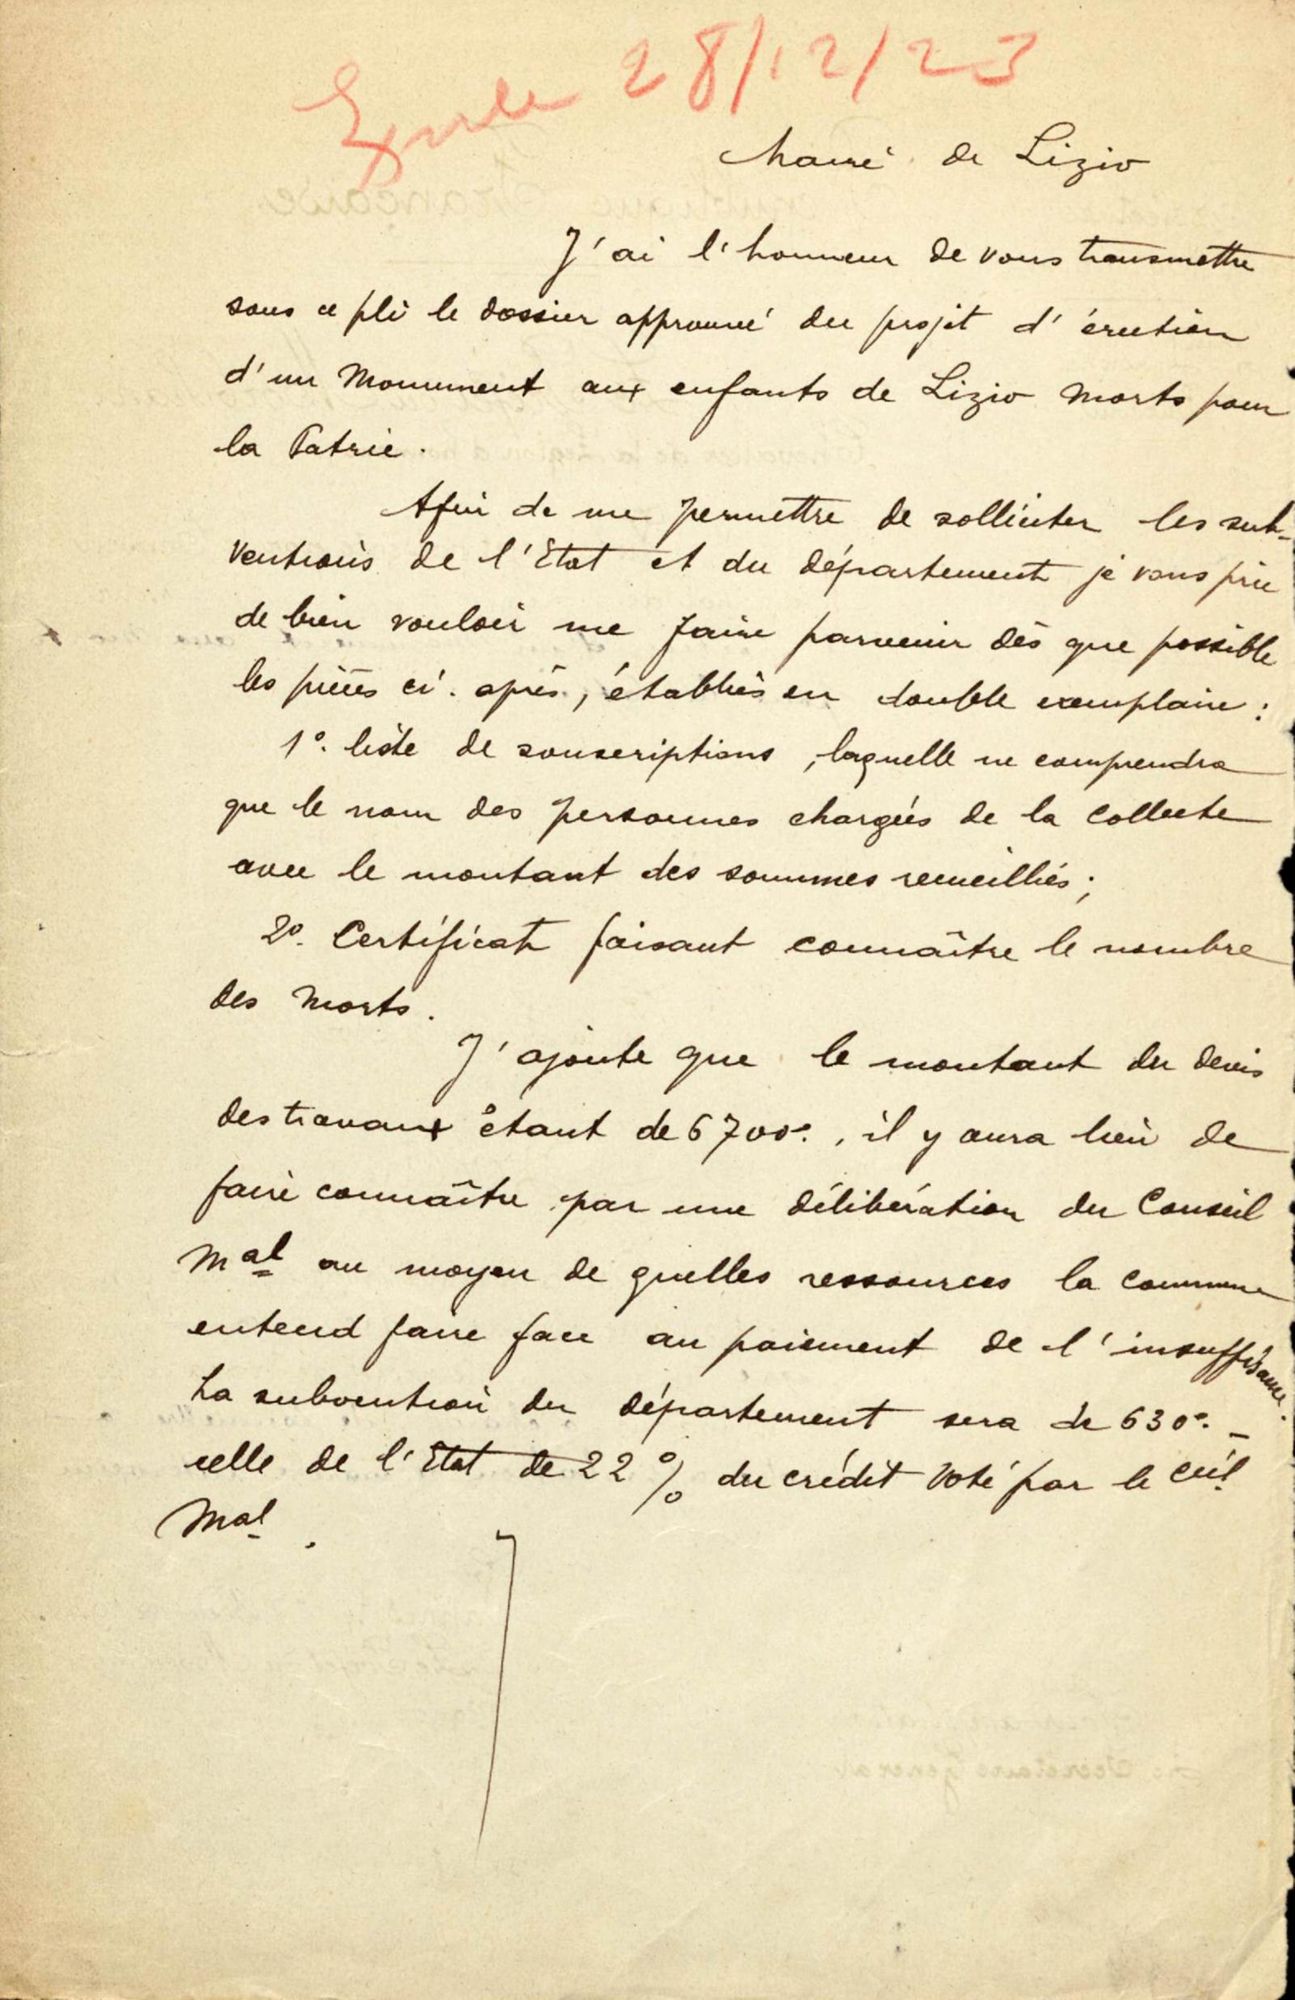 28/12/23
Maire de Lizio
J'ai l'honneur de vous transmettre
sous ce pli le dossier approuvé du projet d'érection
d'un Monument aux enfants de Lizio Morts pour
la Patrie.
Afin de me permettre de solliciter les sub-
ventions de l'Etat et du département je vous prie
de bien vouloir me faire parvenir dès que possible
les pièces ci-après, établies en double exemplaire :
1º. liste de souscriptions, laquelle ne comprendra
que le nom des personnes chargées de la collecte
avec le montant des sommes recueillies;
2º. Certificat faisant connaître le nombre
des Morts.
J'ajoute que le montant du devis
des travaux étant de 6700., il y aura lieu de
faire connaître par une délibération du Conseil
Mal au moyen de quelles ressources la commune
entend faire face au paiement de l'insuffisance.
La subvention du département sera de 630. _
celle de l'Etat de 22 % du crédit voté par le Ceil
Mal.